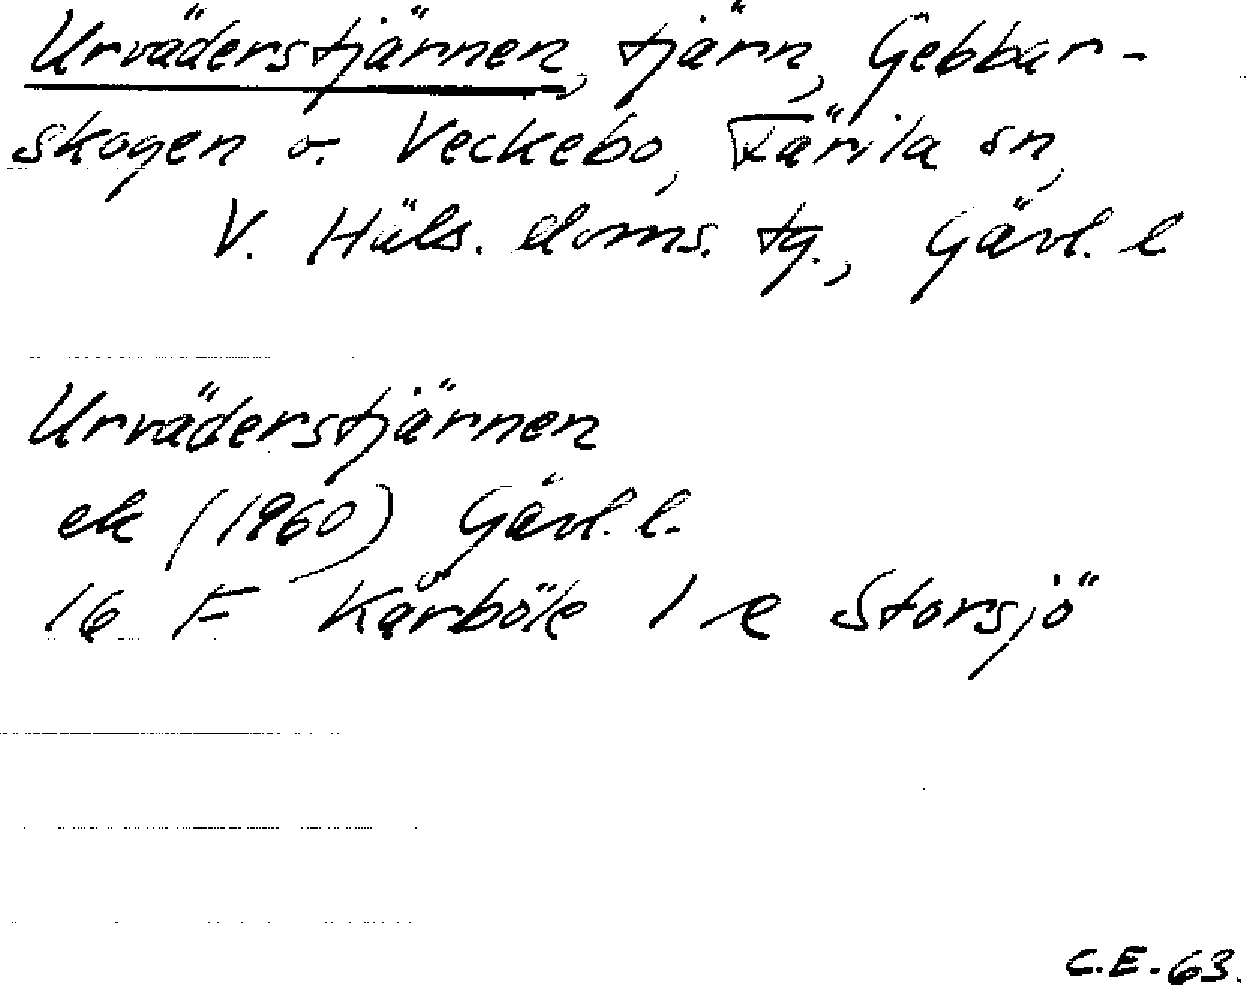 Urväderstjärnen, tjärn, Gebbar-
skogen o. Veckebo, Färila sn,
V. Häls. doms. tg., Gävl. l
Urväderstjärnen
ek (1960) Gävl. l.
16 F Kårböle 1 e Storsjö
C.E. 63.